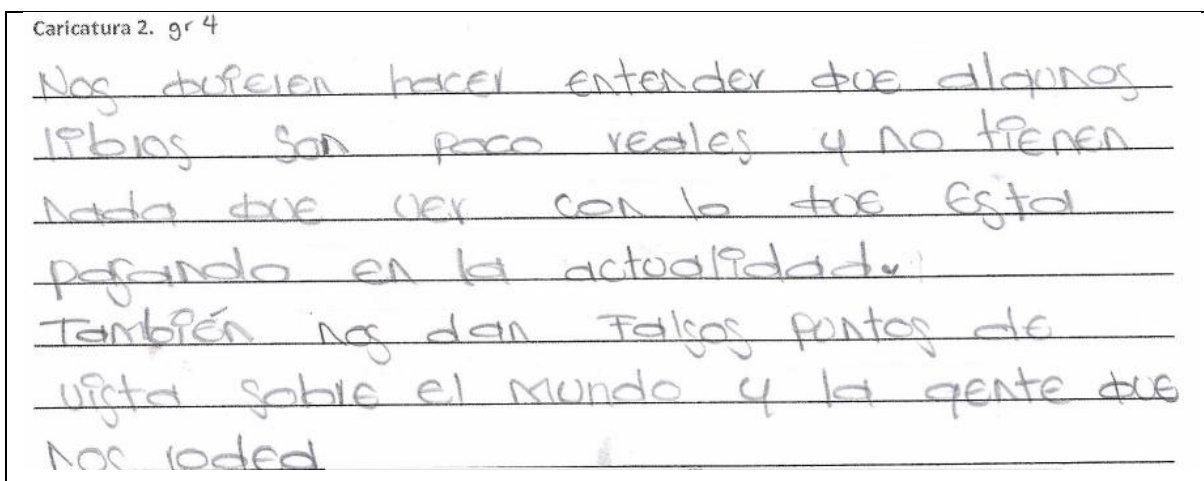 Caricatura 2. gr 4
Nos quieren hacer entender que algunos
libros son poco reales y no tienen
nada que ver con lo que esta
pasando en la actualidad.
También nos dan Falsos puntos de
vista sobre el mundo y la gente que
nos rodea